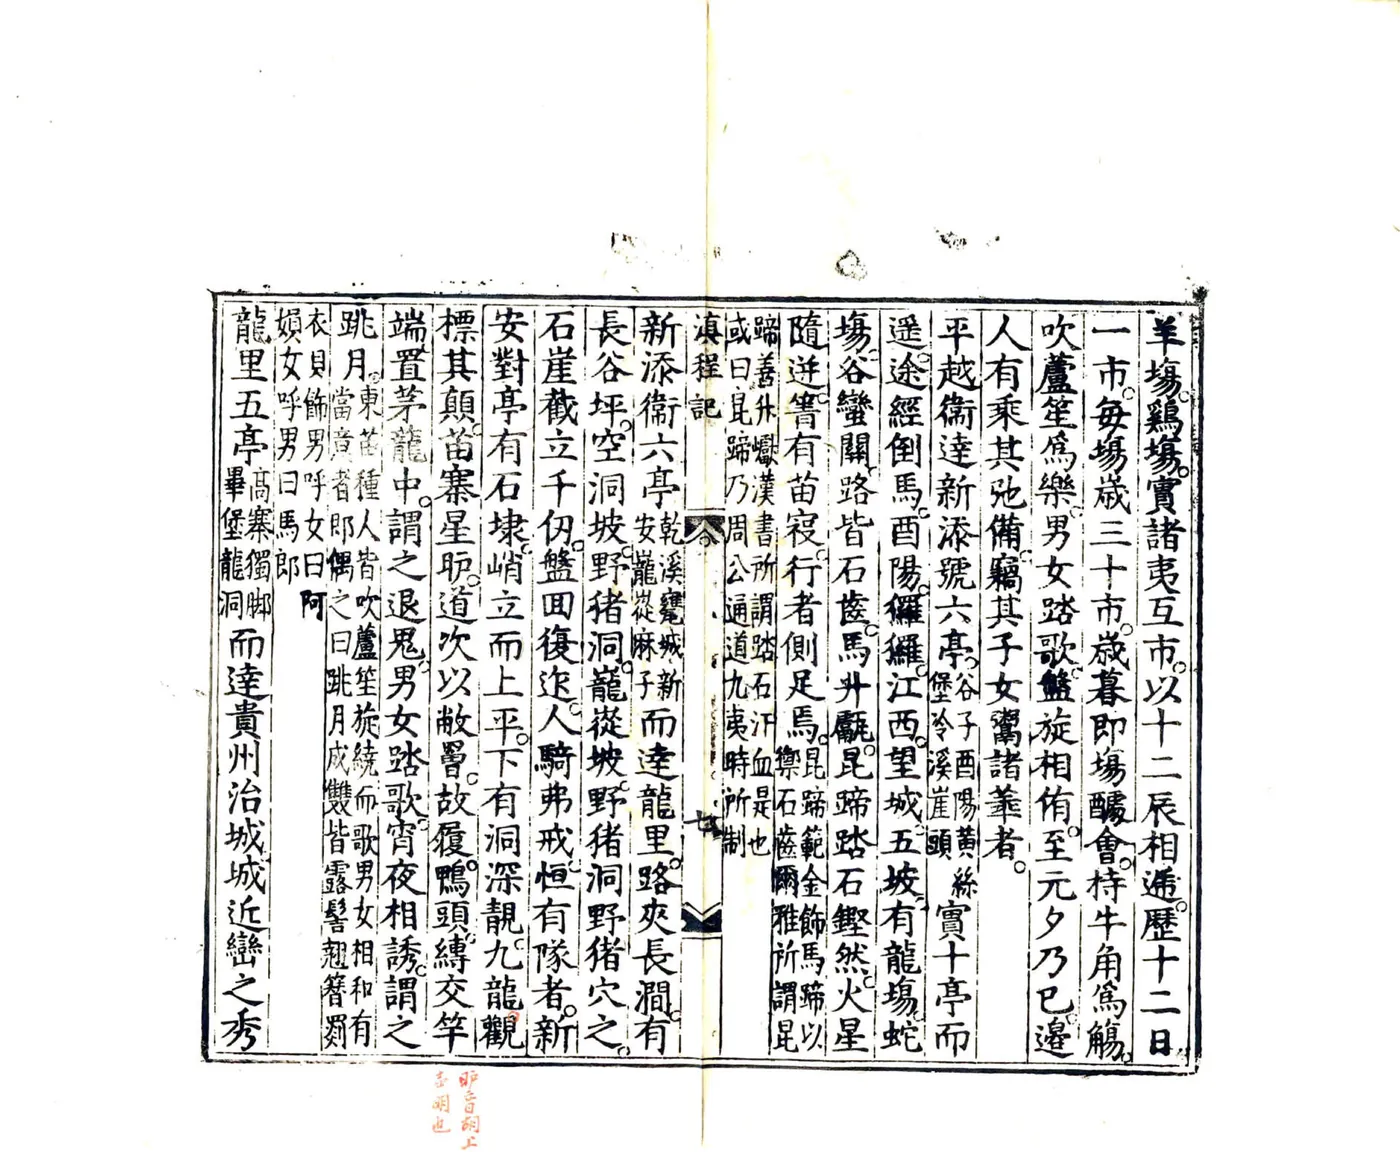 羊塲。鷄塲。實諸夷互市。以十二辰相逓。歷十二日
一市。每場歲三十市。歲暮即場醵會。持牛角爲觴。
吹蘆笙爲樂。男女踏歌。盤旋相侑。至元夕乃已。邉
人有乘其弛備。竊其子女鬻諸輩者。
平越衞達新添號六亭。谷子酉陽黃絲
堡冷溪崖頭實十亭而
遥。途經倒馬。酉陽。玀玀。江西。望城五坡。有龍塲。蛇
塲。谷蠻關。路皆石齒。馬升甗。昆蹄踏石鏗然。火星
隨迸。箐有苗𥨊。行者側足焉。昆蹄範金飾馬蹄以
禦石齒爾雅所謂昆
蹄善升巘漢書所謂踏石汗血是也
或曰昆蹄乃周公通道九夷時所制
滇程記
新添衞六亭乾溪甕城新
安巃嵸麻子而達龍里。路夾長澗。有
長谷坪。空洞坡。野猪洞。巃嵸坡。野猪洞野猪穴之。
石崖截立千仞。盤回復迩。人騎弗戒。恒有隊者。新
安對亭有石埭。峭立而上平。下有洞深靚。九龍觀
標其顛。苗寨星昈。道次以敝罾。故履。鴨頭。縛交竿
端置茅龍中。謂之退鬼。男女踏歌。宵夜相誘。謂之
跳月。東苗種人皆吹蘆笙旋繞而歌男女相和有
當意者即偶之曰跳月成雙皆露髻翹簪𦋺
衣貝飾男呼女曰阿
娘女呼男曰馬郎
龍里五亭高寨獨脚
畢堡龍洞而達貴州治城城近巒之秀
昈音胡上
去明也